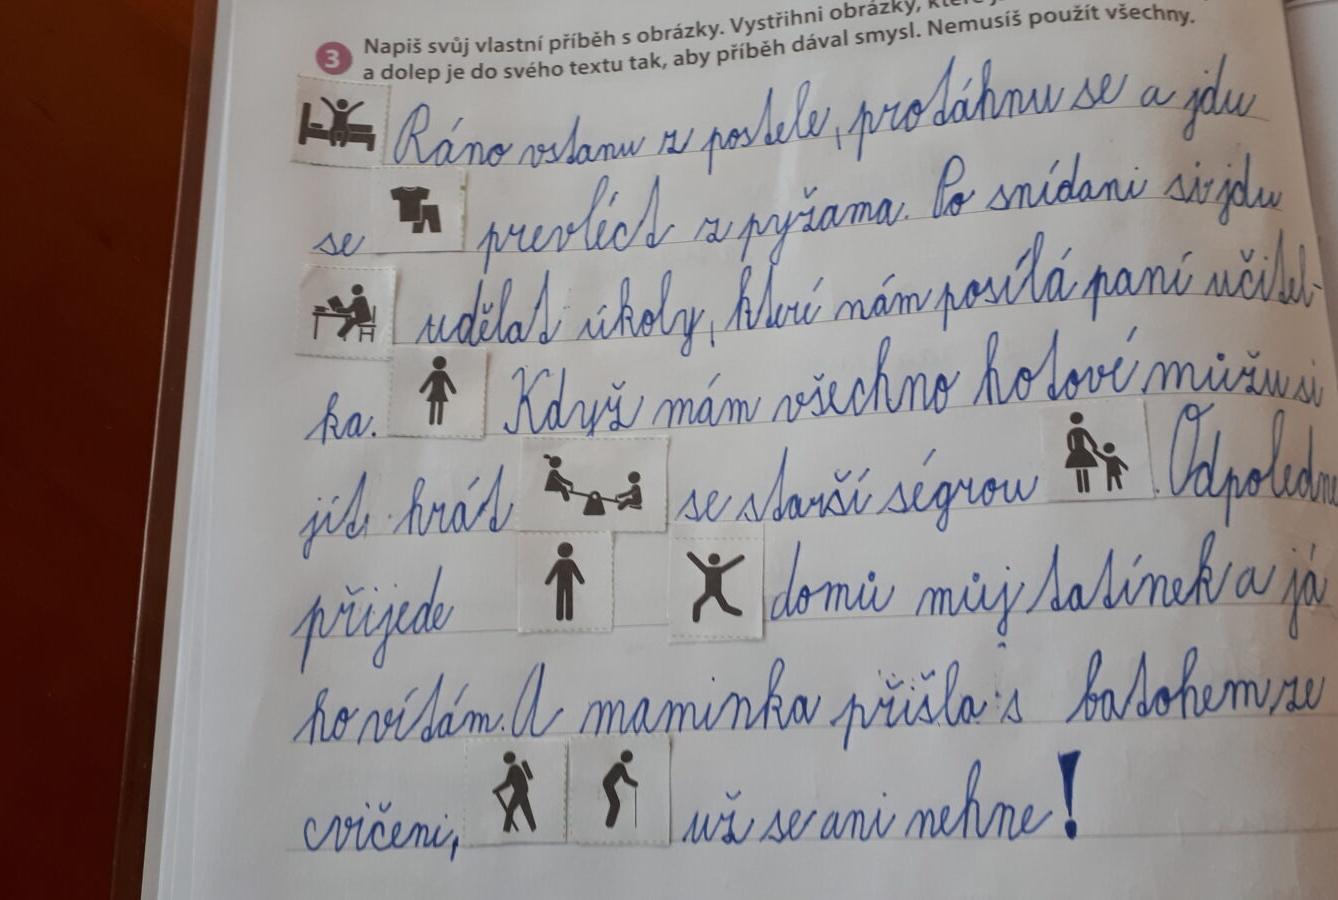 3 Napiš svůj vlastní příběh s obrázky. Vystřihni obrázky, které
a dolep je do svého textu tak, aby příběh dával smysl. Nemusíš použít všechny.
Ráno vstanu z postele, protáhnu se a jdu
se prevléct z pyžama. Po snídani si jdu
udělat úkoly, které nám posílá paní učitel-
ka. Když mám všechno hotové můžu si
jít hrát se starší ségrou. Odpoledne
přijede domů můj tatínek a já
ho vítám. A maminka přišla s batohem ze
cvičeni, už se ani nehne!